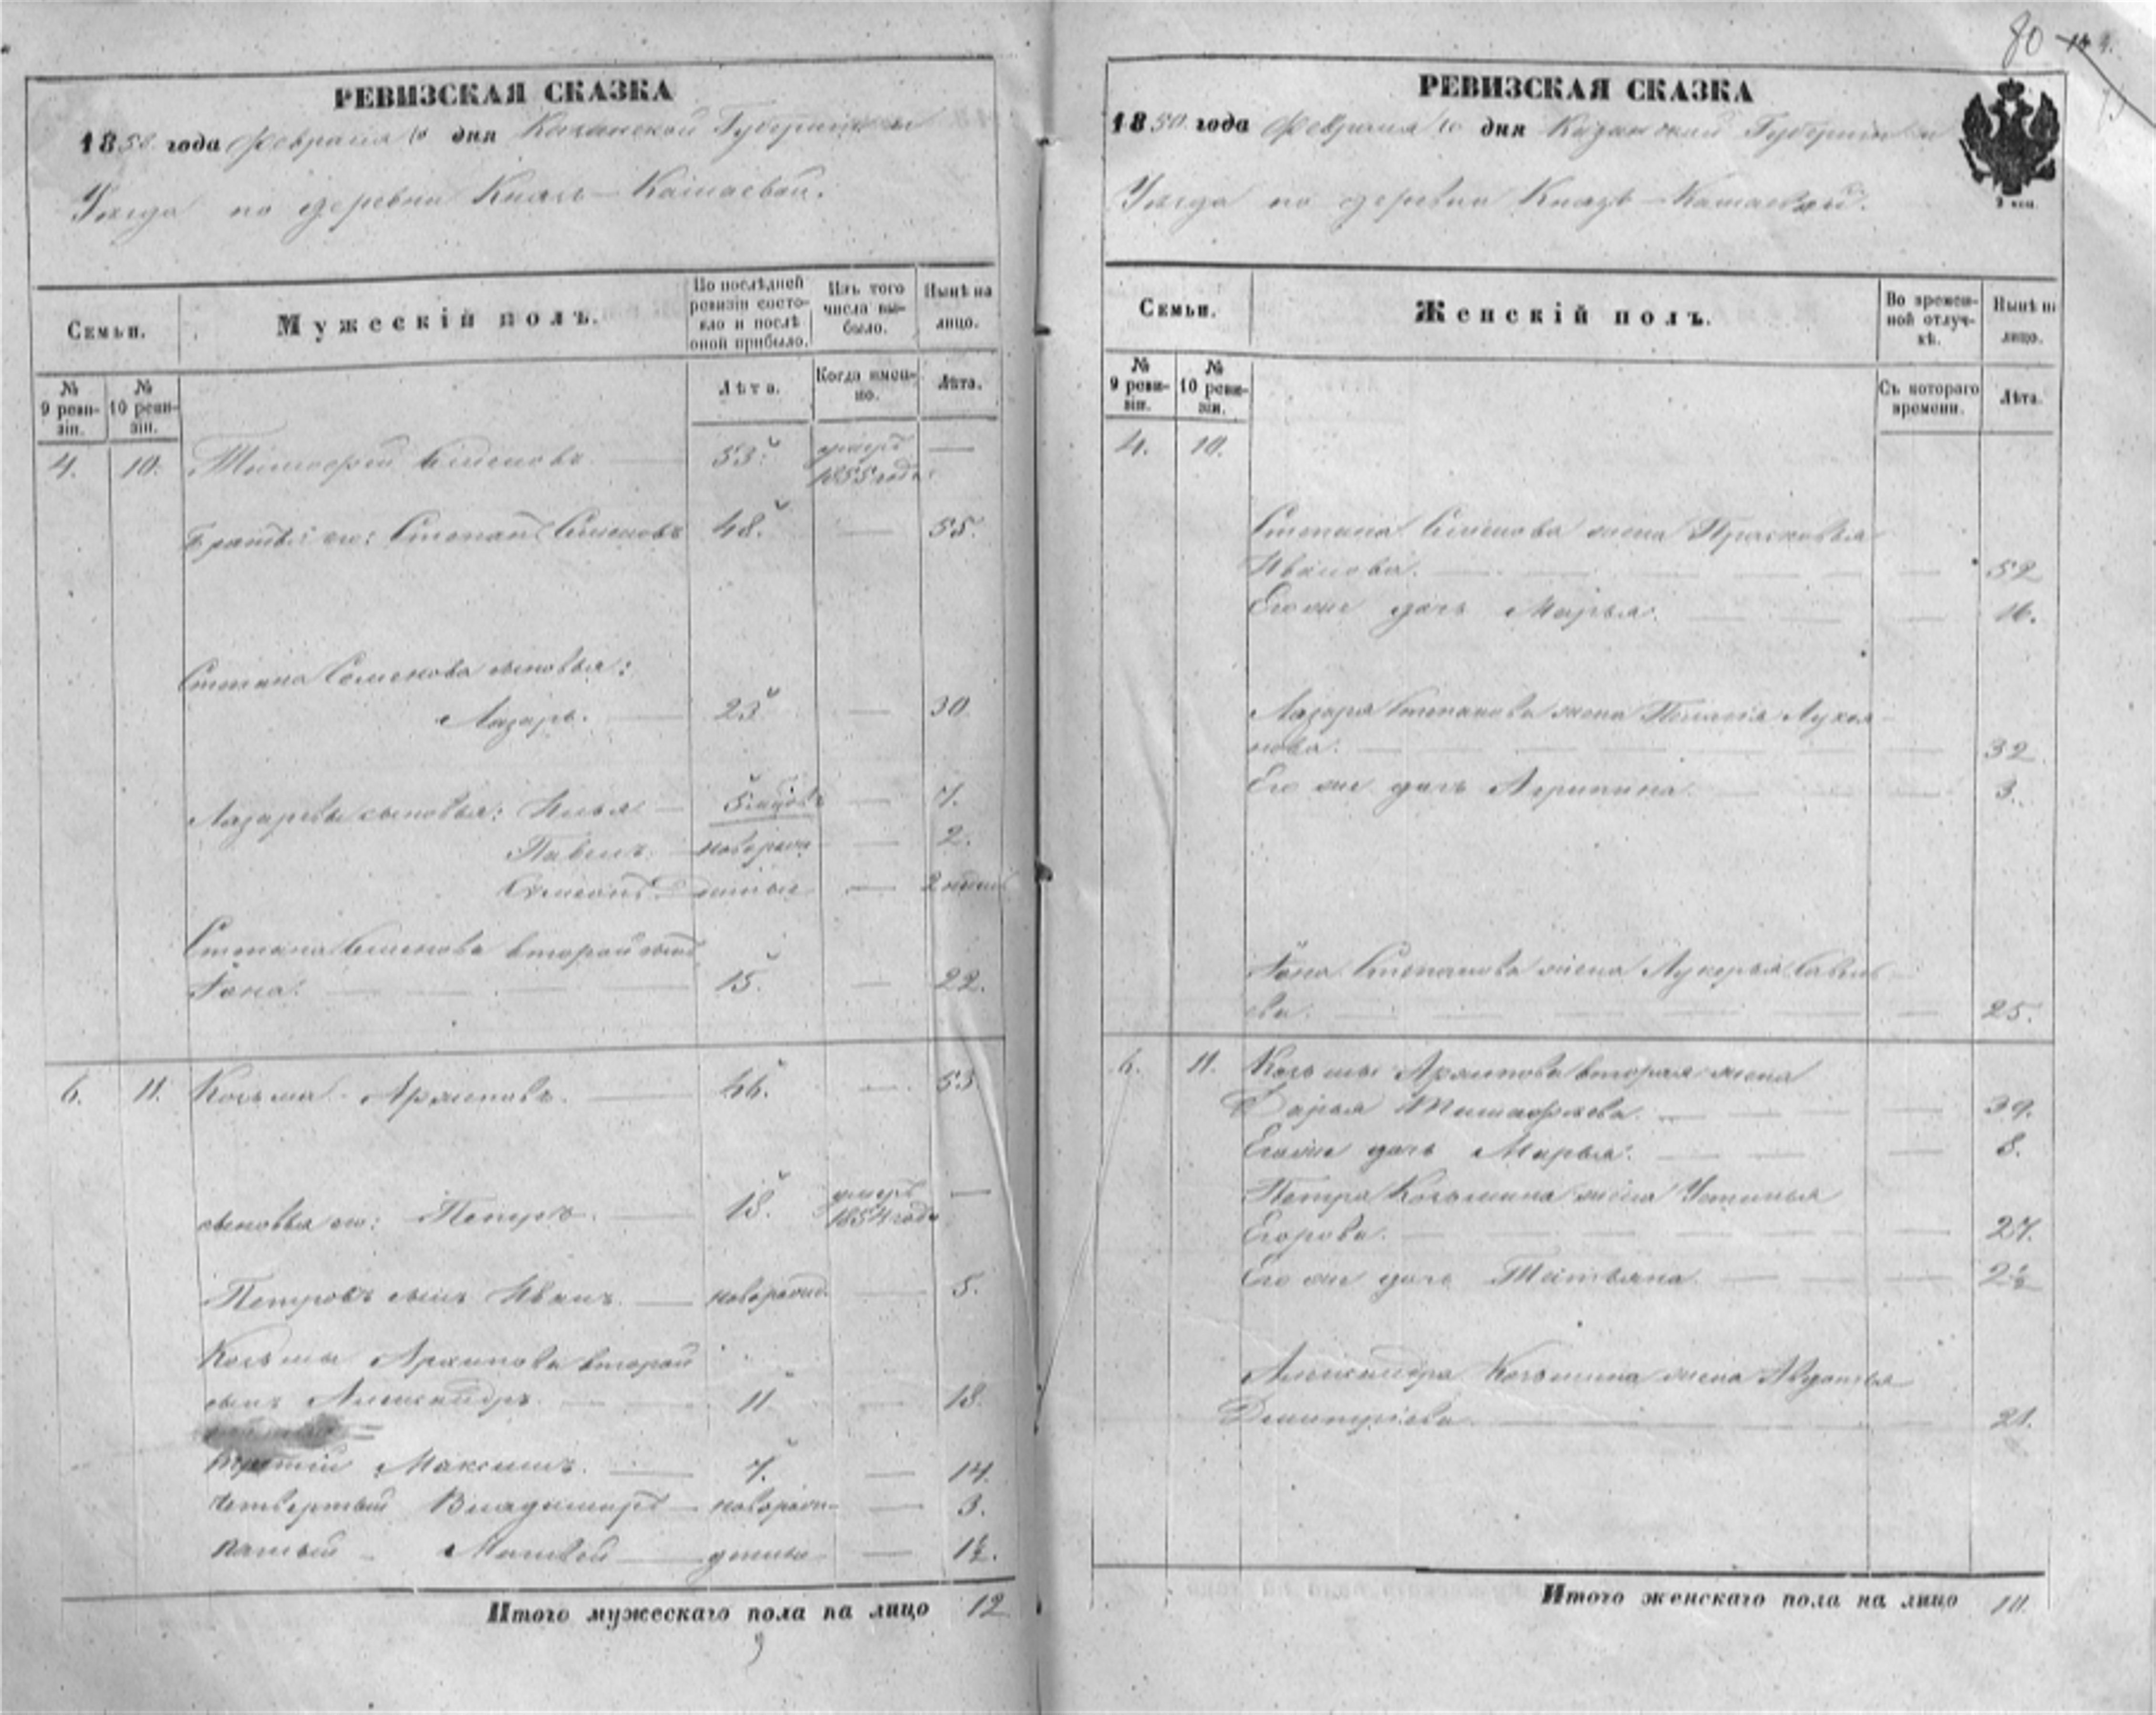 РЕВИЗСКАЯ СКАЗКА
1858 года Февраля 10 дня Казанской Губерніи и
Уезда по деревни Князь-Камаевой.
Семьи.
Мужескій полъ.
По послѣдней ревизіи состояло и послѣ оной прибыло.
Изъ того числа выбыло.
Нынѣ на лицо.
№ 9 ревизіи.
№ 10 ревизіи.
Лѣта.
Когда именно.
Лѣта.
4. 10. Тимофей Семеновъ 53. умеръ 1855 года —
Братья его: Степанъ Семеновъ 48. — 55.
Степана Семенова сыновья:
Лазарь. 23 — 30
Лазаревы сыновья: Илья — 7.
Павелъ. новорожд — 2.
Симеонъ — 2 недел
Степана Семенова второй сынъ
Іона. 15. — 22.
6. 11. Козьма Архиповъ. 46. — 53.
сыновья его: Петръ. 18. умеръ 1854 года —
Петровъ сынъ Иванъ новорожд. — 5.
Козьмы Архипова второй
сынъ Александръ. 11 — 18.
третій Максимъ. 7. — 14.
четвертый Владимиръ новорожд — 3.
пятый Матвей — 1½.
Итого мужескаго пола на лицо 12
80
РЕВИЗСКАЯ СКАЗКА
1858 года Февраля 10 дня Казанской Губерніи и
Уезда по деревни Князь-Камаевой.
2 коп.
Семьи.
Женскій полъ.
Во временной отлучкѣ.
Нынѣ на лицо.
№ 9 ревизіи.
№ 10 ревизіи.
Съ котораго времени.
Лѣта.
4. 10.
Степана Семенова жена Прасковья
Иванова. — 52
Его же дочь Марья. — 16.
Лазаря Степанова жена Пелагея Лукоя-
нова. — 32
Его же дочь Агрипина — 3.
Іона Степанова жена Лукерья Савель
ева. — 25.
6. 11. Козьмы Архипова вторая жена
Дарья Тимофеева. — 39.
Его же дочь Марья. — 8.
Петра Козьмина жена Устинья
Егорова. — 27.
Его же дочь Татьяна — 2½
Александра Козьмина жена Авдотья
Дмитріева — 21.
Итого женскаго пола на лицо 10.